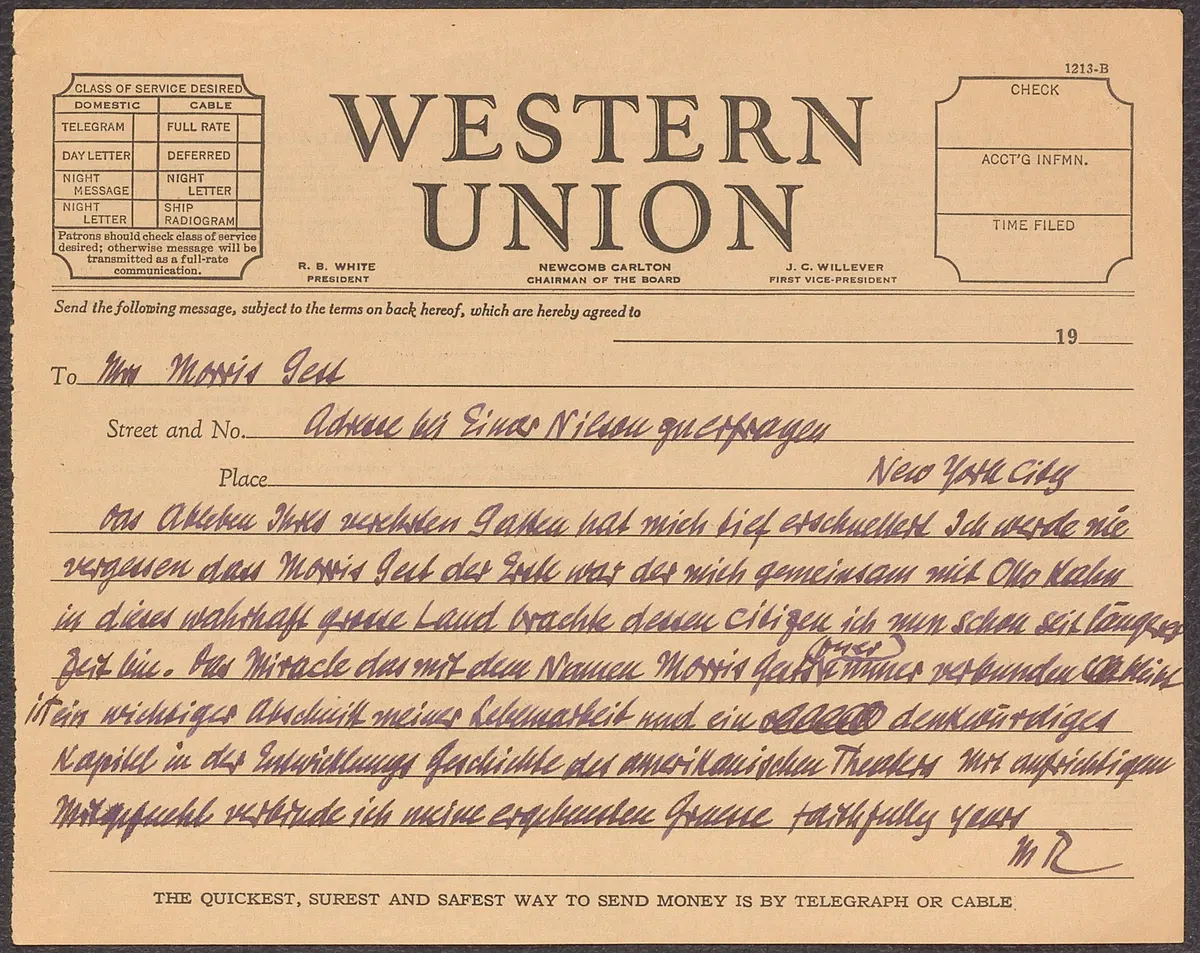 1213-B
CLASS OF SERVICE DESIRED
DOMESTIC CABLE
TELEGRAM FULL RATE
DAY LETTER DEFERRED
NIGHT MESSAGE NIGHT LETTER
NIGHT LETTER SHIP RADIOGRAM
Patrons should check class of service
desired; otherwise message will be
transmitted as a full-rate
communication.
WESTERN
UNION
R. B. WHITE
PRESIDENT
NEWCOMB CARLTON
CHAIRMAN OF THE BOARD
J. C. WILLEVER
FIRST VICE-PRESIDENT
CHECK
ACCT'G INFMN.
TIME FILED
Send the following message, subject to the terms on back hereof, which are hereby agreed to
19
To Mrs Morris Gest
Street and No. Adresse bei Einar Nilson zu erfragen
Place New York City
Das Ableben Ihres verehrten Gatten hat mich tief erschuettert Ich werde nie
vergessen dass Morris Gest der Erste war der mich gemeinsam mit Otto Kahn
in dieses wahrhaft grosse Land brachte dessen Citizen ich nun schon seit längerer
Zeit bin. Das Miracle das mit dem Namen Morris Gest immer verbunden bleibt
ist ein wichtiger Abschnitt meiner Lebensarbeit und ein denkwürdiges
Kapitel in der Entwicklungs Geschichte des amerikanischen Theaters Mit aufrichtigem
Mitgefuehl verbinde ich meine ergebensten Gruesse faithfully yours
MR
THE QUICKEST, SUREST AND SAFEST WAY TO SEND MONEY IS BY TELEGRAPH OR CABLE